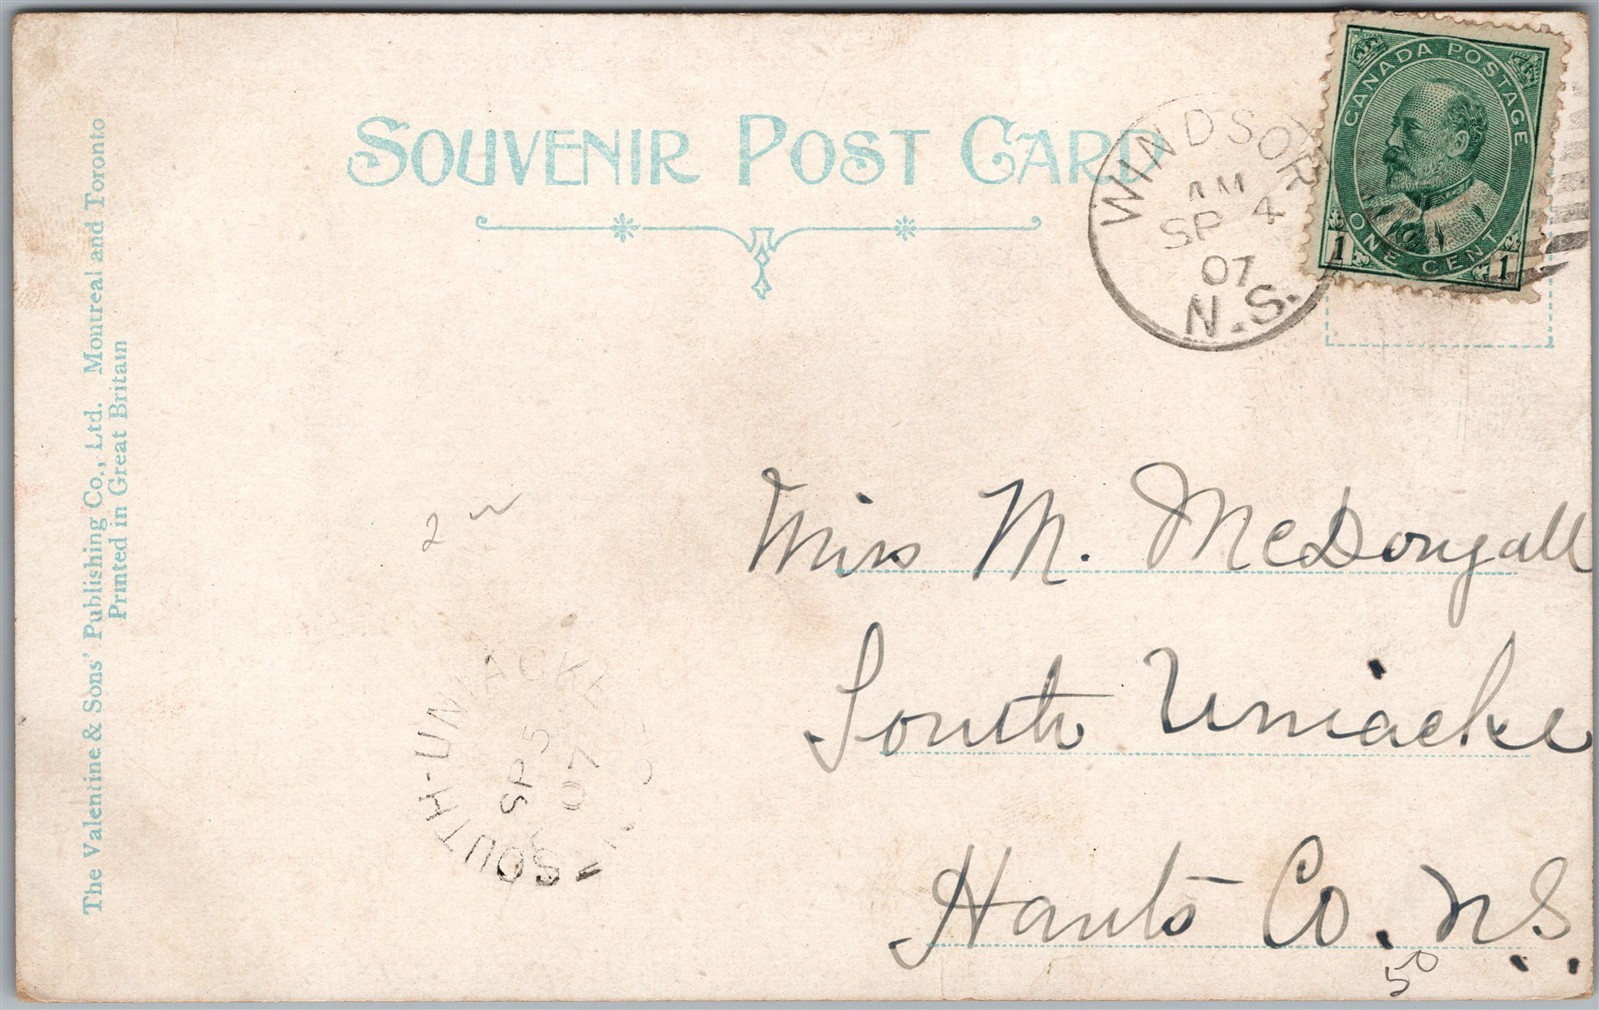 SOUVENIR POST CARD
CANADA POSTAGE
ONE CENT
1 1
WINDSOR
AM
SP 4
07
N.S.
The Valentine & Sons' Publishing Co., Ltd. Montreal and Toronto
Printed in Great Britain
Miss M. McDougall
South Uniacke
Hants Co. N.S.
50
SOUTH-UNIACKE
SP 5
07